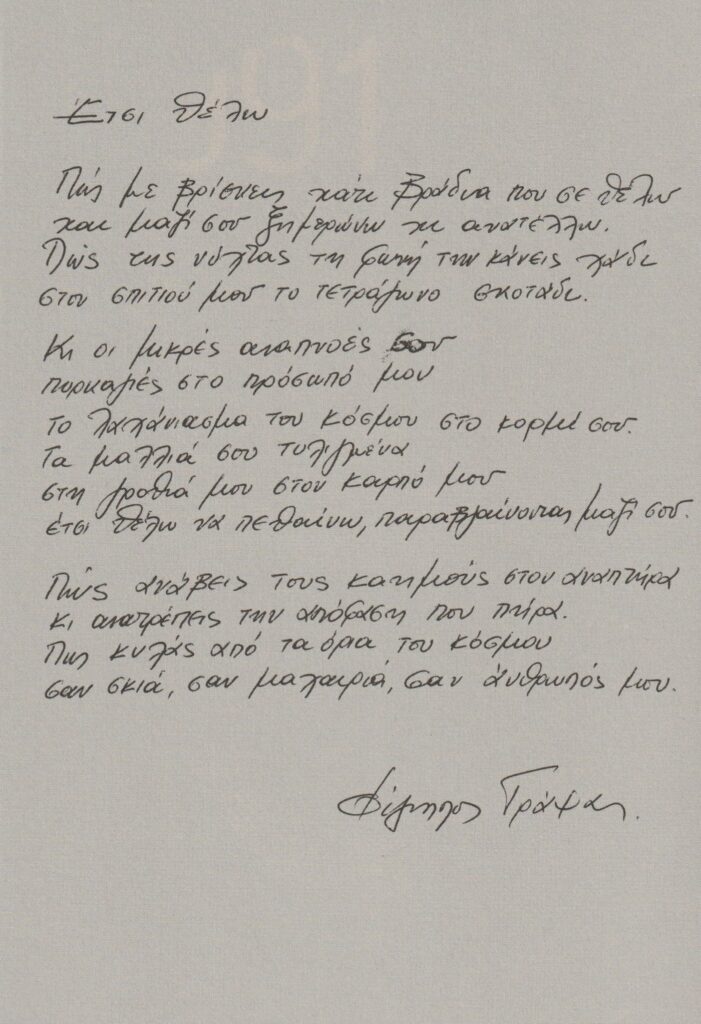 Έτσι θέλω
Πώς με βρίσκεις κάτι βράδια που σε θέλω
και μαζί σου ξημερώνω κι ανατέλλω.
Πώς της νύχτας τη φωνή την κάνεις χάδι
στου σπιτιού μου το τετράγωνο σκοτάδι.
Κι οι μικρές αναπνοές σου
πυρκαγιές στο πρόσωπό μου
το λαχάνιασμα του κόσμου στο κορμί σου.
Τα μαλλιά σου τυλιγμένα
στη γροθιά μου στον καρπό μου
έτσι θέλω να πεθαίνω, παραβγαίνοντας μαζί σου.
Πώς ανάβεις τους καημούς στον αναπτήρα
κι ανατρέπεις την απόφαση που πήρα.
Πως κυλάς από τα όρια του κόσμου
σαν σκιά, σαν μαχαιριά, σαν άνθρωπός μου.
Φίλιππος Γράψας.